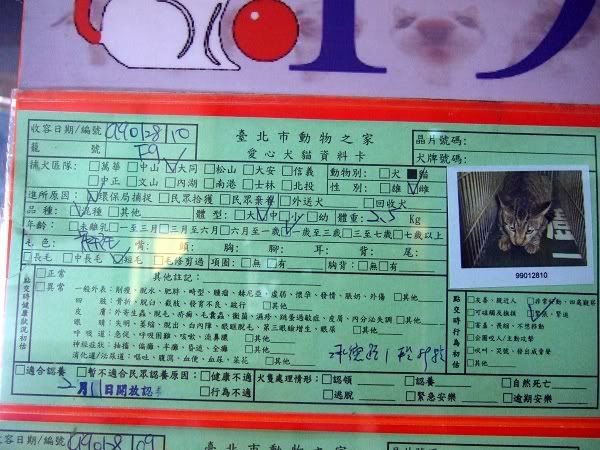 收容日期/編號 99012810
臺北市動物之家
晶片號碼:
籠 號 F9
愛心犬貓資料卡
犬牌號碼:
捕犬區隊: □萬華 □中山 ☑大同 □松山 □大安 □信義 動物別: □犬 ■貓
□中正 □文山 □內湖 □南港 □士林 □北投 性 別: □雄 ☑雌
進所原因: ☑環保局捕捉 □民眾拾獲 □民眾棄養 □外送犬 □回收犬
品 種: ☑混種 □其他 體 型: □大 ☑中 □小 □幼 體重: Kg
年齡: □未離乳 □一至三月 □三月至六月 □六月至一歲 □一歲至三歲 □三歲至七歲 □七歲以上
毛色: 嘴: 頭: 胸: 腳: 耳: 背: 尾:
□長毛 □中長毛 ☑短毛 □毛修剪過 項圈: □無 □有 胸背: □無 □有
99012810
點交時健康狀況初估
□正常
□異常
其他註記:
一般外表: 削瘦、脫水、肥胖、畸型、腫瘤、赫尼亞、虛弱、懷孕、發情、脹奶、外傷 □其他
四 肢: 骨折、脫臼、截肢、發育不良、跛行 □其他
皮 膚: 外寄生蟲、脫毛、疥癬、毛囊蟲、黴菌、濕疹、跳蚤過敏症、皮屑、內分泌失調 □其他
眼 睛: 失明、萎縮、脫出、白內障、眼瞼脫毛、第三眼瞼增生、眼屎 □其他
呼 吸 道: 急促、呼吸困難、咳嗽、流鼻膿 □其他
神經症狀: 抽搐、偏癱、半癱、昏迷、全癱 □其他
消化道/泌尿道: 嘔吐、腹瀉、血便、血尿、菜花 □其他
點交時行為初估
□友善、親近人
□可碰觸及擁抱
□害羞、畏縮、不想移動
□企圖咬人/主動攻擊
□吠叫、哭號、發出威脅聲
□其他
□非常好動、四處觀察
緊張、緊迫
□適合認養 □暫不適合民眾認養原因: □健康不適 犬隻處理情形: □認領 □認養 □自然死亡
月11日開放認養 □行為不適 □逃脫 □緊急安樂 □逾期安樂
收容日期/編號 99012809
臺北市動物之家
晶片號碼: